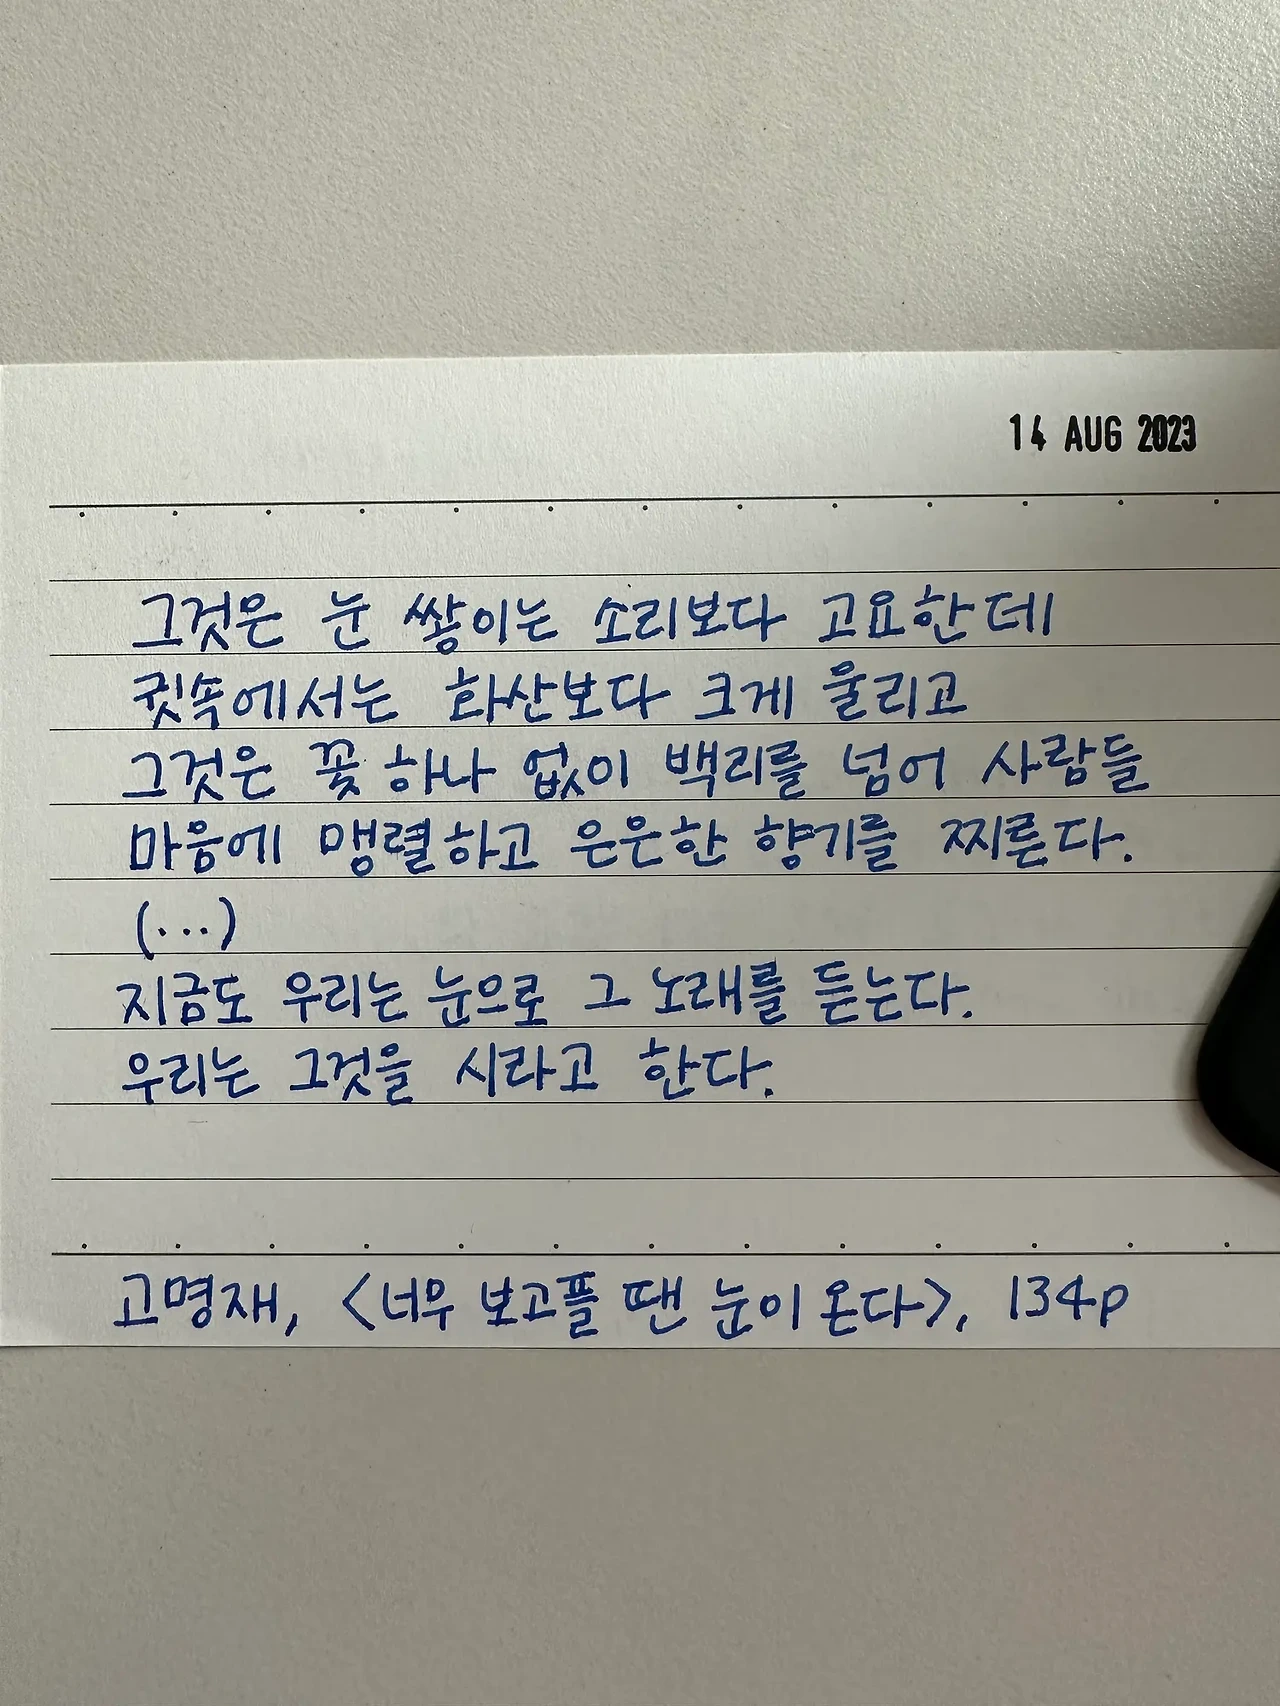 14 AUG 2023
그것은 눈 쌓이는 소리보다 고요한데
귓속에서는 화산보다 크게 울리고
그것은 꽃 하나 없이 백리를 넘어 사람들
마음에 맹렬하고 은은한 향기를 찌른다.
(...)
지금도 우리는 눈으로 그 노래를 듣는다.
우리는 그것을 시라고 한다.
고명재, <너무 보고플 땐 눈이 온다>, 134p